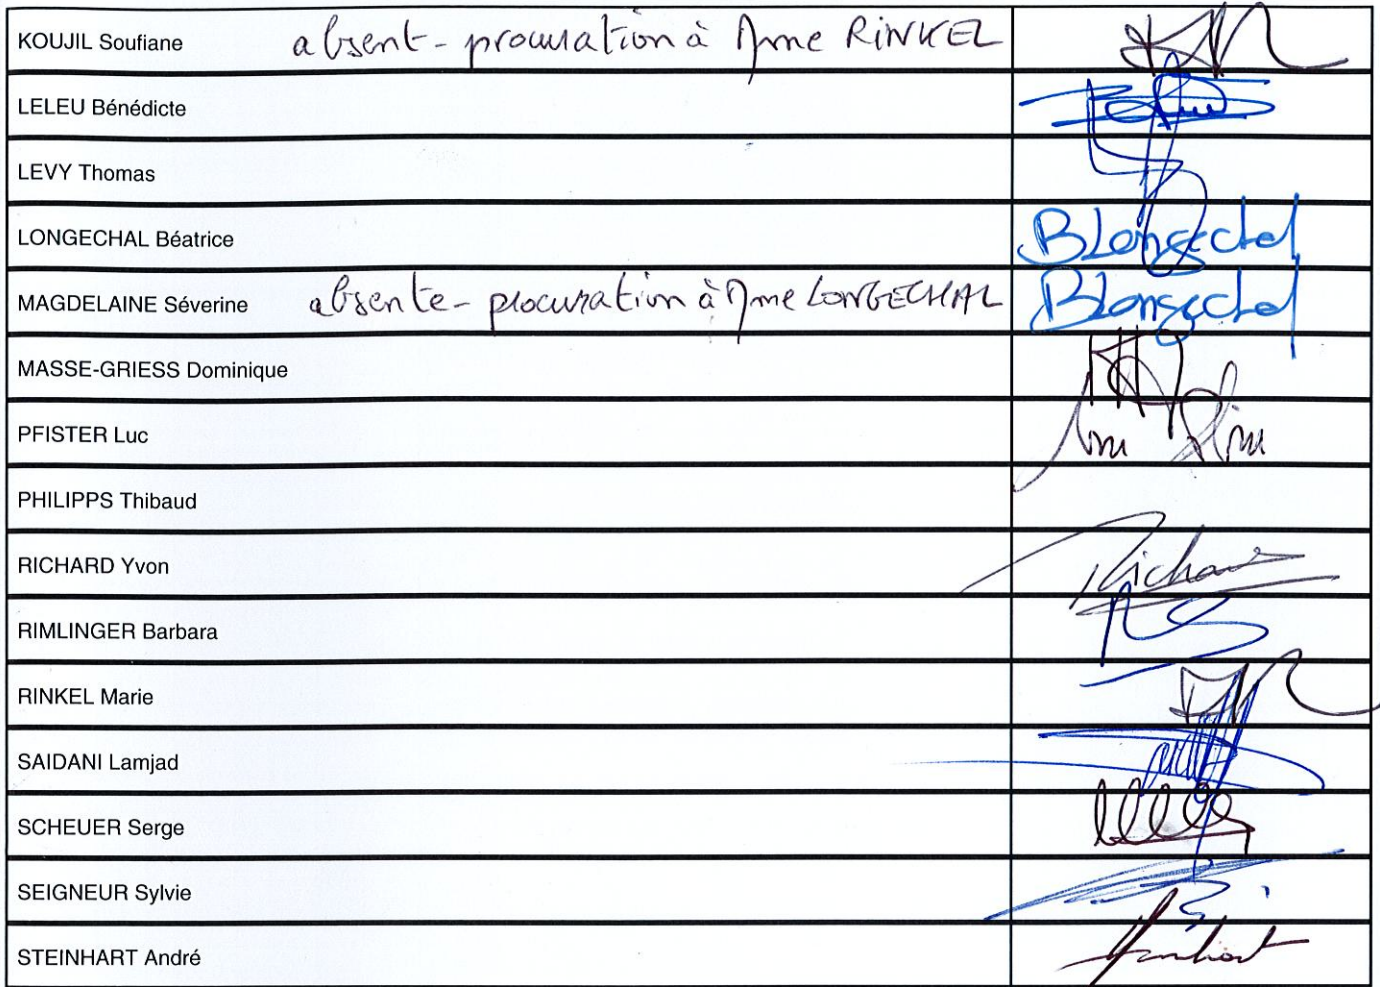 KOUJIL Soufiane absent - procuration à Mme RINKEL
LELEU Bénédicte
LEVY Thomas
LONGECHAL Béatrice BLongechal
MAGDELAINE Séverine absente - procuration à Mme LONGECHAL BLongechal
MASSE-GRIESS Dominique
PFISTER Luc
PHILIPPS Thibaud
RICHARD Yvon Richard
RIMLINGER Barbara
RINKEL Marie
SAIDANI Lamjad
SCHEUER Serge
SEIGNEUR Sylvie
STEINHART André